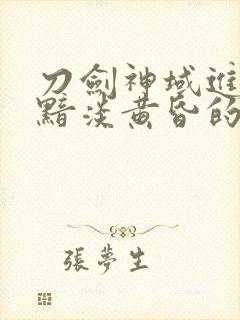 刀劍神域進
黯淡黃昏的
張夢生